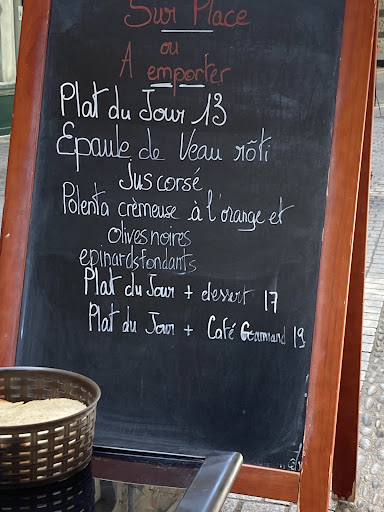 Sur Place
ou
A emporter
Plat du Jour 13
Epaule de Veau rôti
Jus corsé
Polenta crèmeuse à l'orange et
olives noires
epinards fondants
Plat du Jour + dessert 17
Plat du Jour + Café Gourmand 19